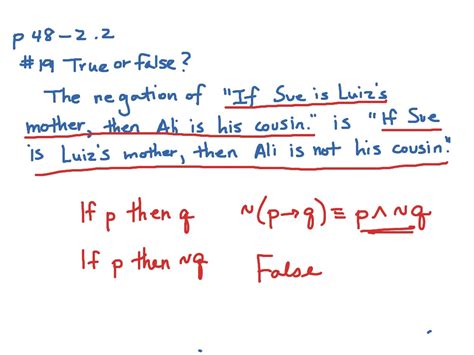 p 48-2.2
#19 True or false?
The negation of "If Sue is Luiz's
mother, then Ali is his cousin." is "If Sue
is Luiz's mother, then Ali is not his cousin."
If p then q ~(p→q) ≡ p∧~q
If p then ~q False